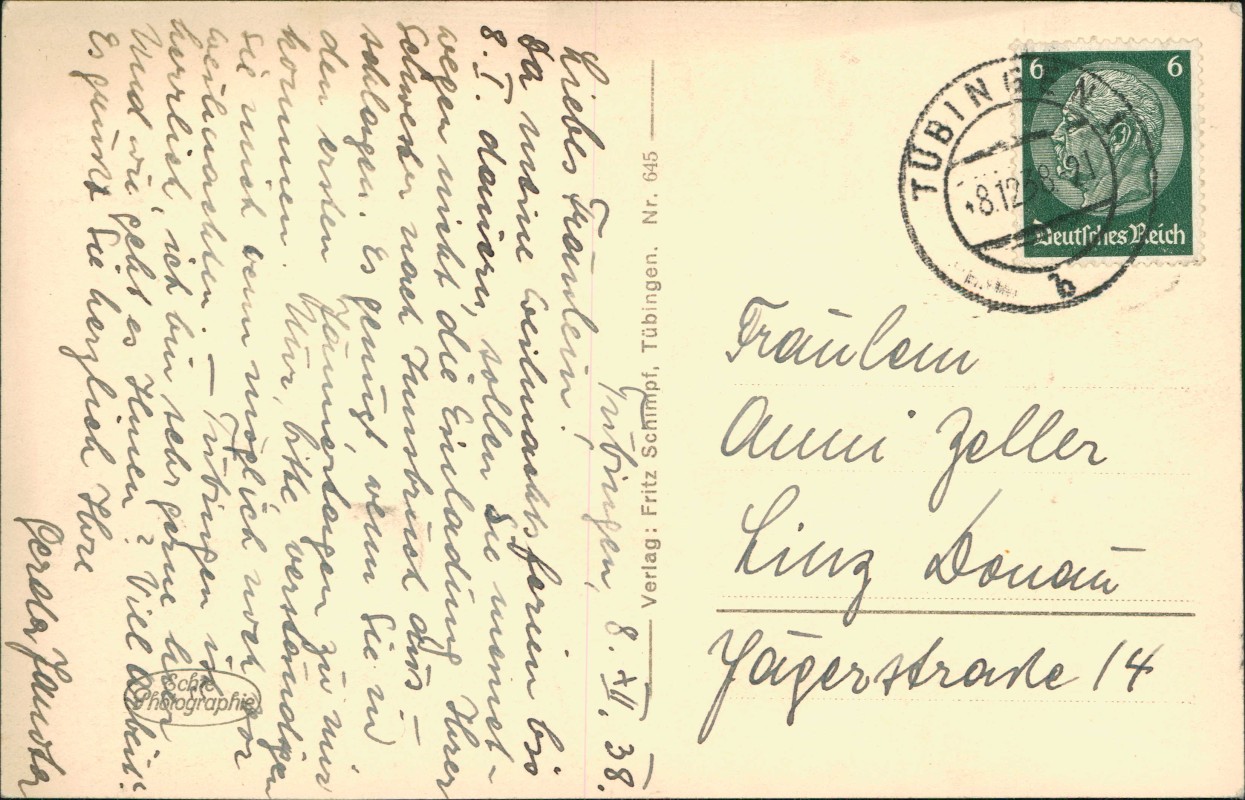 Tübingen, 8. XII. 38.
Liebes Fräulein!
Da meine Weihnachtsferien bis
8. I. dauern, sollen Sie meinet-
wegen nicht die Einladung Ihrer
Schwester nach Innsbruck aus-
schlagen. Es genügt, wenn Sie in
den ersten Jännertagen zu mir
kommen. Nur, bitte verständigen
Sie mich wenn möglich noch vor
Weihnachten. — Tübingen ist
herrlich, ich bin sehr gerne hier
Und wie geht es Ihnen? Viel Arbeit?
Es grüßt Sie herzlich Ihre
Gerda
Echte
Photographie
Verlag: Fritz Schimpf, Tübingen. Nr. 645
TÜBINGEN 1
8.12.38-21
b
6 6
Deutsches Reich
Fräulein
Anni Zeller
Linz Donau
Jägerstraße 14